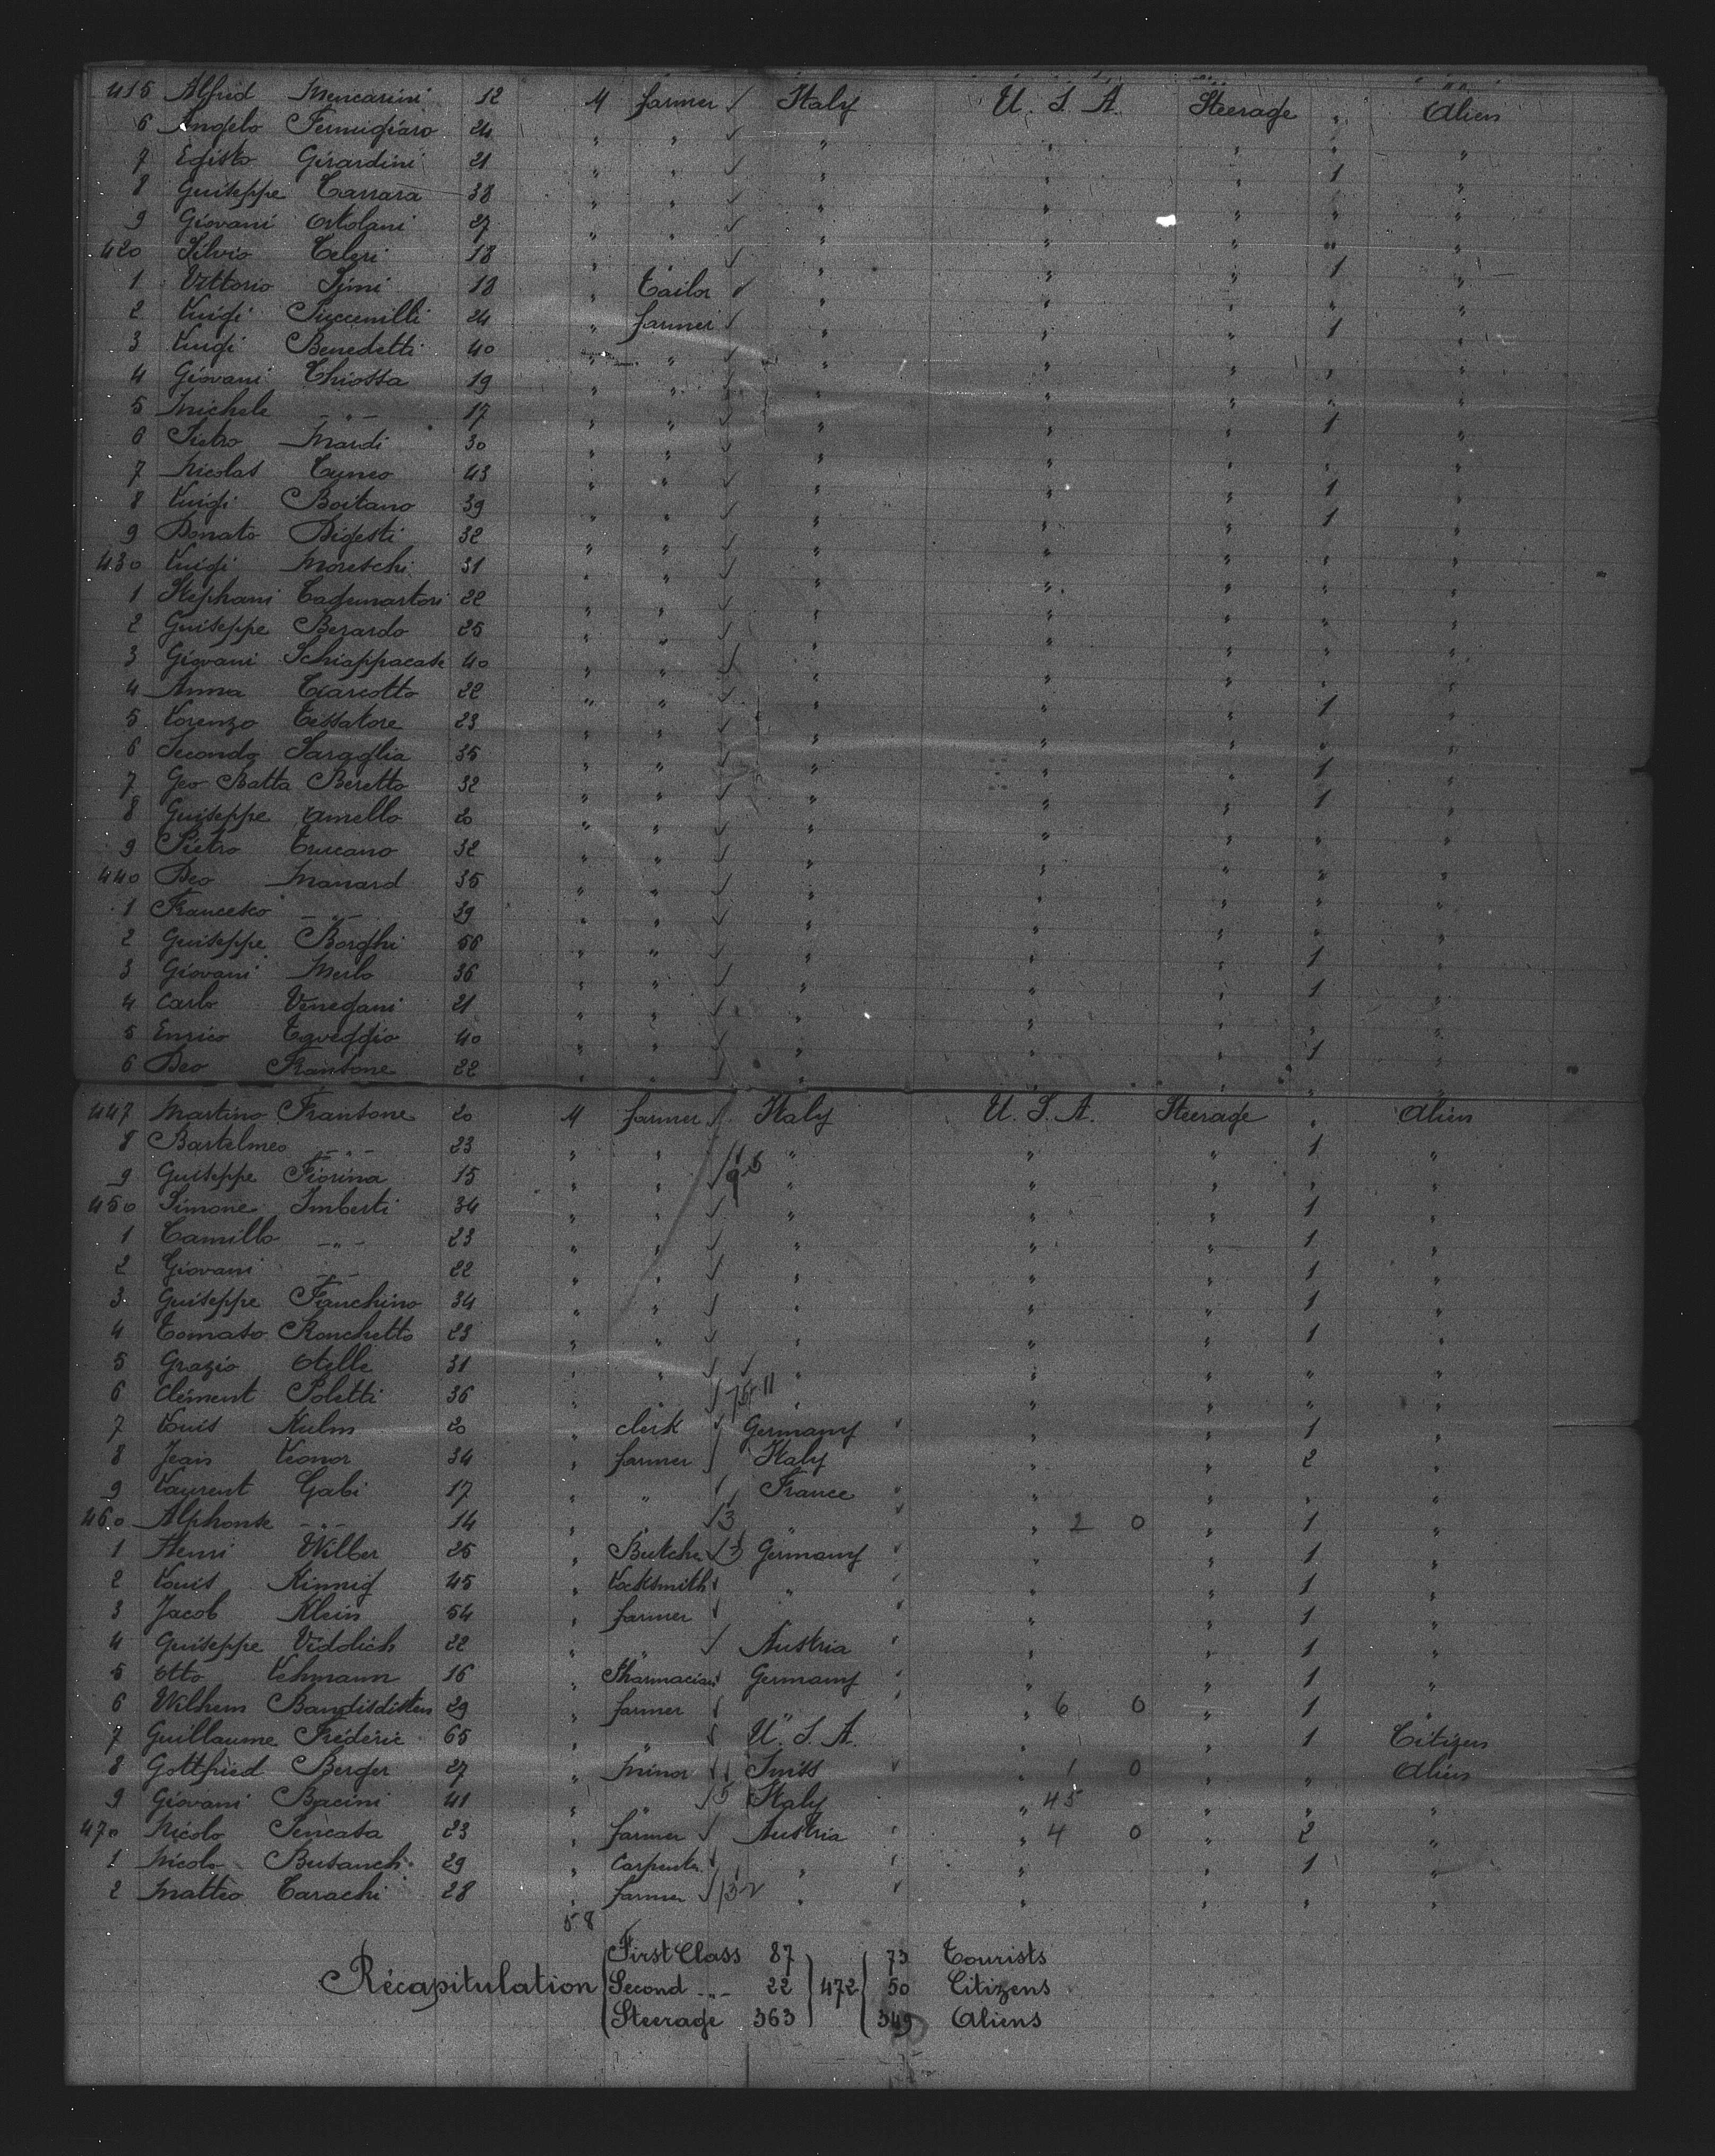 415 Alfred Mencarini 12 M farmer ✓ Italy U. S. A. Steerage " Alien
6 Angelo Fermigiaro 24 " " ✓ " " " " "
7 Egisto Girardini 21 " " ✓ " " " 1 "
8 Guiseppe Carrara 38 " " ✓ " " " " "
9 Giovani Ortolani 27 " " ✓ " " " " "
420 Silvio Celeri 18 " " ✓ " " " 1 "
1 Vittorio Simi 18 " Tailor ✓ " " " " "
2 Luigi Puccenilli 24 " farmer ✓ " " " 1 "
3 Luigi Benedetti 40 " " ✓ " " " "
4 Giovani Chiossa 19 " " ✓ " " " " "
5 Michele — " — 17 " " ✓ " " " 1 "
6 Pietro Mardi 30 " " ✓ " " " " "
7 Nicolas Cuneo 43 " " ✓ " " " 1 "
8 Luigi Boitano 39 " " ✓ " " " 1 "
9 Donato Digesti 32 " " ✓ " " " " "
430 Luigi Moreschi 31 " " ✓ " " " " "
1 Stephani Cagunartori 22 " " ✓ " " " " "
2 Guiseppe Berardo 25 " " ✓ " " " " "
3 Giovani Schiappacase 40 " " ✓ " " " " "
4 Anna Ciarcotto 22 " " ✓ " " " 1 "
5 Lorenzo Tissatore 23 " " ✓ " " " " "
6 Secondo Saraglia 35 " " ✓ " " " 1 "
7 Geo Batta Beretto 32 " " ✓ " " " 1 "
8 Guiseppe Amello 20 " " ✓ " " " " "
9 Pietro Truscano 32 " " ✓ " " " " "
440 Deo Manard 35 " " ✓ " " " " "
1 Francesko — " — 39 " " ✓ " " " " "
2 Guiseppe Borghi 56 " " ✓ " " " 1 "
3 Giovani Merlo 36 " " ✓ " " " 1 "
4 Carlo Venegani 21 " " ✓ " " " " "
5 Enrico Taveggio 40 " " ✓ " " " 1 "
6 Deo Frantone 22 " " ✓ " " " " "
447 Martino Frantone 20 M farmer ✓ Italy U. S. A. Steerage " Alien
8 Bartelmeo — " — 23 " " ✓ " " " 1 "
9 Guiseppe Fiorina 15 " " ✓ " " " " "
450 Simone Imberti 34 " " ✓ " " " 1 "
1 Camillo — " — 23 " " ✓ " " " 1 "
2 Giovani — " — 22 " " ✓ " " " 1 "
3 Guiseppe Fanchino 34 " " ✓ " " " 1 "
4 Tomaso Ronchetto 23 " " ✓ " " " 1 "
5 Grazio Otelle 31 " " ✓ ✓ " " " " "
6 Clément Poletti 36 " " ✓ " " " " "
7 Louis Kulm 20 " clerk ✓ Germany ✓ " " 1 "
8 Jean Leonor 34 " farmer ✓ Italy " " 2 "
9 Laurent Gabi 17 " " ✓ France " " " " "
460 Alphonse — " — 14 " " ✓ 3 " ✓ " 2 0 " 1 "
1 Henri Wilber 25 " Butcher ✓ 3 Germany ✓ " " 1 "
2 Louis Kinnig 45 " Locksmith ✓ " " " 1 "
3 Jacob Klein 54 " farmer ✓ " ✓ " " 1 "
4 Guiseppe Viddich 22 " " ✓ Austria ✓ " " 1 "
5 Otto Lehmann 16 " Pharmacian ✓ Germany ✓ " " 1 "
6 Wilhem Bandisdisten 29 " farmer ✓ " ✓ " 6 0 " 1 "
7 Guillaume Frédéric 65 " " ✓ U. S. A. " " 1 Citizen
8 Gottfried Berger 27 " minor ✓ Swiss ✓ " 1 0 " " Alien
9 Giovani Bacini 41 " " ✓ 5 Italy " 45 " " "
470 Nicolo Pencasa 23 " farmer ✓ Austria ✓ " 4 0 " 2 "
1 Nicolo Busanch 29 " Carpenter ✓ " ✓ " " 1 "
2 Matteo Carachi 28 " farmer ✓ " ✓ " " " "
58
First Class 87 73 Tourists
Récapitulation Second — " — 22 472 50 Citizens
Steerage 363 349 Aliens